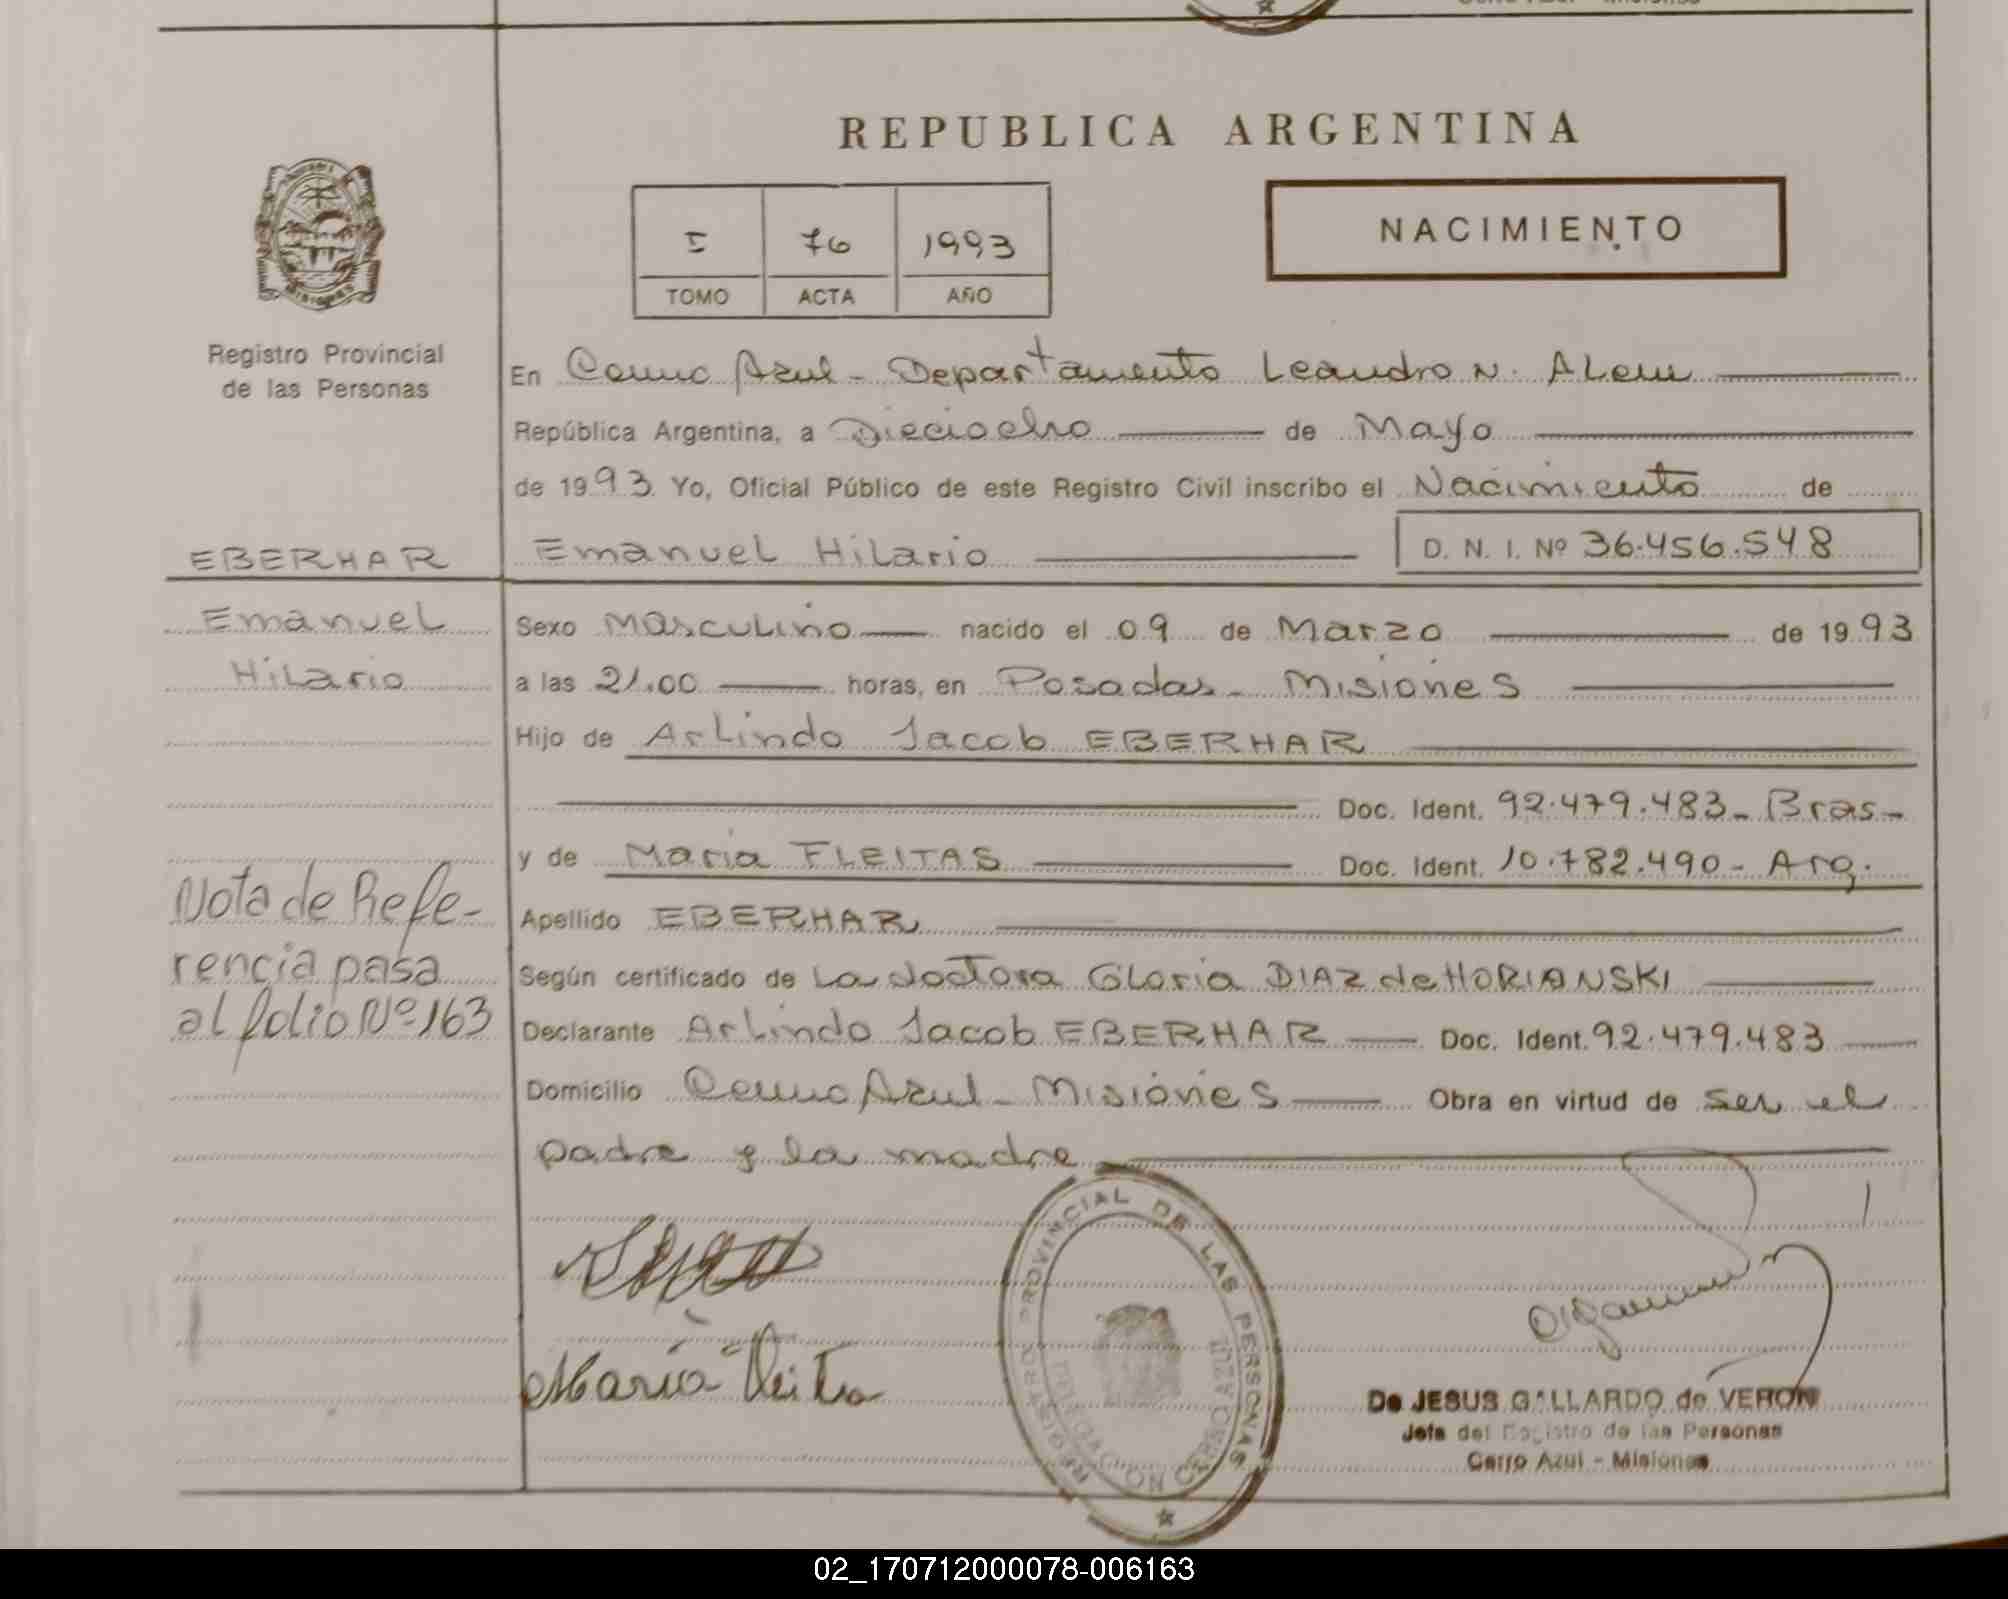 REPUBLICA ARGENTINA
I 76 1993
TOMO ACTA AÑO
NACIMIENTO
MISIONES
Registro Provincial
de las Personas
En Cerro Azul - Departamento Leandro N. ALem
República Argentina, a Dieciocho de Mayo
de 1993. Yo, Oficial Público de este Registro Civil inscribo el Nacimiento de
EBERHAR
Emanuel Hilario D. N. I. Nº 36.456.548
Emanuel
Hilario
Sexo Masculino nacido el 09 de Marzo de 1993
a las 21.00 horas, en Posadas - Misiones
Hijo de Arlindo Jacob EBERHAR
Doc. Ident. 92.479.483 - Bras -
y de Maria FLEITAS Doc. Ident. 10.782.490 - Arg.
Nota de Refe-
rencia pasa
al folio Nº 163
Apellido EBERHAR
Según certificado de La doctora Gloria DIAZ de HORIANSKI
Declarante Arlindo Jacob EBERHAR Doc. Ident. 92.479.483
Domicilio Cerro Azul - Misiones Obra en virtud de ser el
padre y la madre
Maria
REGISTRO PROVINCIAL DE LAS PERSONAS
DELEGACION CERRO AZUL
De JESUS GALLARDO de VERON
Jefa del Registro de las Personas
Cerro Azul - Misiones
02_170712000078-006163